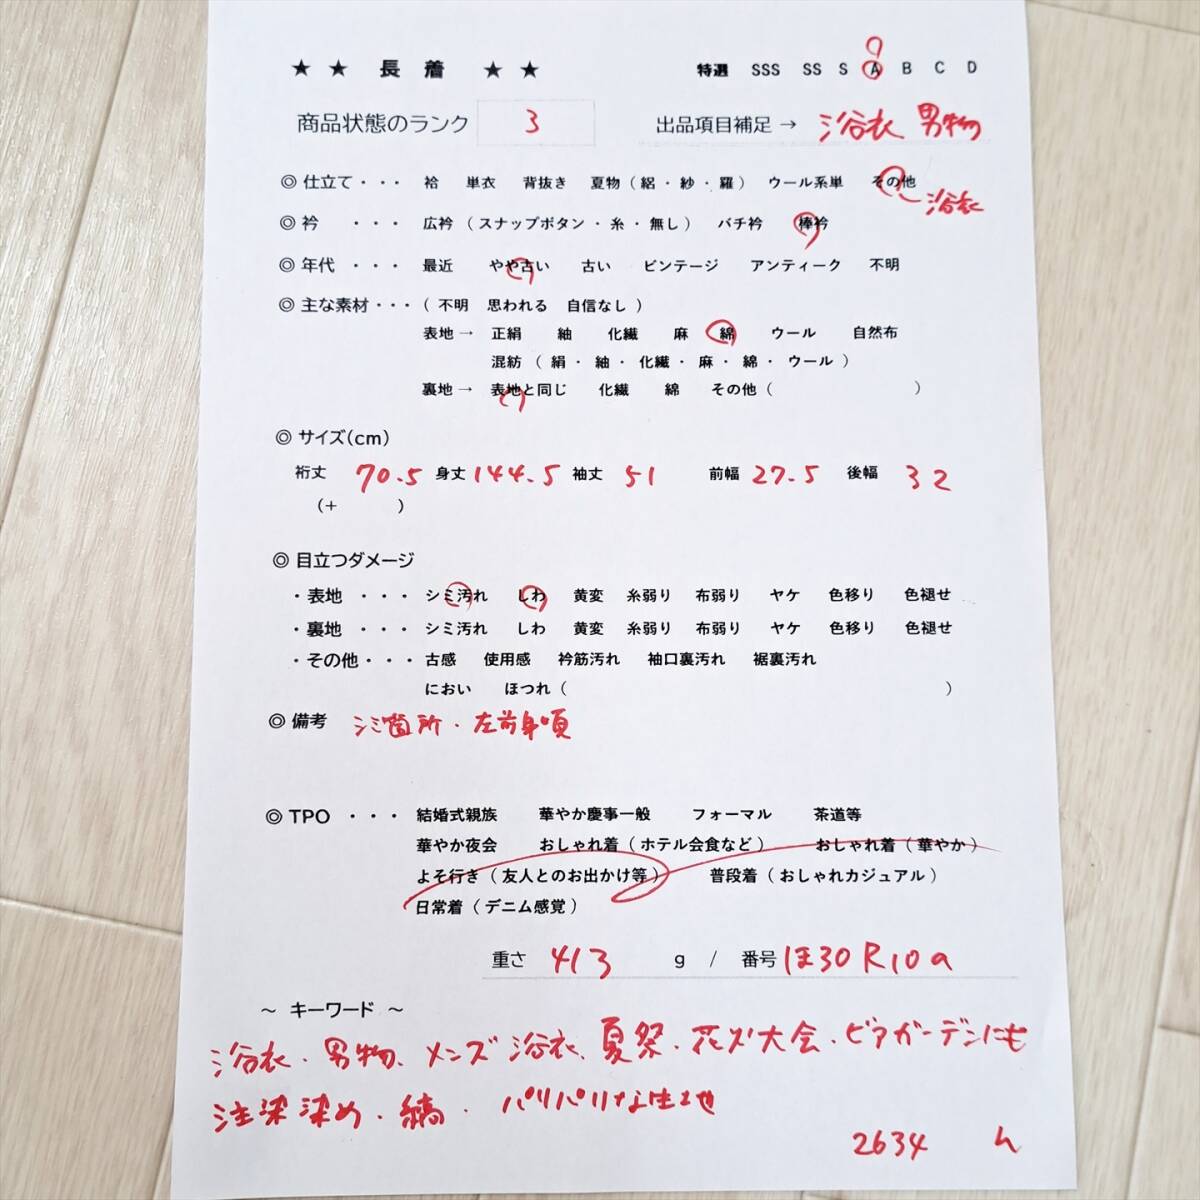 ★ ★ 長 着 ★ ★ 特選 SSS SS S A B C D
商品状態のランク 3 出品項目補足 → 浴衣 男物
◎ 仕立て・・・ 袷 単衣 背抜き 夏物 ( 絽 ・ 紗 ・ 羅 ) ウール系単 その他
浴衣
◎ 衿 ・・・ 広衿 ( スナップボタン ・ 糸 ・ 無し ) バチ衿 棒衿
◎ 年代 ・・・ 最近 やや古い 古い ビンテージ アンティーク 不明
◎ 主な素材・・・ ( 不明 思われる 自信なし )
表地 → 正絹 紬 化繊 麻 綿 ウール 自然布
混紡 ( 絹 ・ 紬 ・ 化繊 ・ 麻 ・ 綿 ・ ウール )
裏地 → 表地と同じ 化繊 綿 その他 ( )
◎ サイズ(cm)
裄丈 70.5 身丈 144.5 袖丈 51 前幅 27.5 後幅 32
(+ )
◎ 目立つダメージ
・表地 ・・・ シミ汚れ しわ 黄変 糸弱り 布弱り ヤケ 色移り 色褪せ
・裏地 ・・・ シミ汚れ しわ 黄変 糸弱り 布弱り ヤケ 色移り 色褪せ
・その他・・・ 古感 使用感 衿筋汚れ 袖口裏汚れ 裾裏汚れ
におい ほつれ ( )
◎ 備考 シミ箇所・左前身頃
◎ TPO ・・・ 結婚式親族 華やか慶事一般 フォーマル 茶道等
華やか夜会 おしゃれ着 ( ホテル会食など ) おしゃれ着 ( 華やか )
よそ行き ( 友人とのお出かけ等 ) 普段着 ( おしゃれカジュアル )
日常着 ( デニム感覚 )
重さ 413 g / 番号 ほ30R10a
～ キーワード ～
浴衣・男物、メンズ浴衣、夏祭・花火大会・ビアガーデンにも
注染染め・縞・パリパリな生地
2634 ん